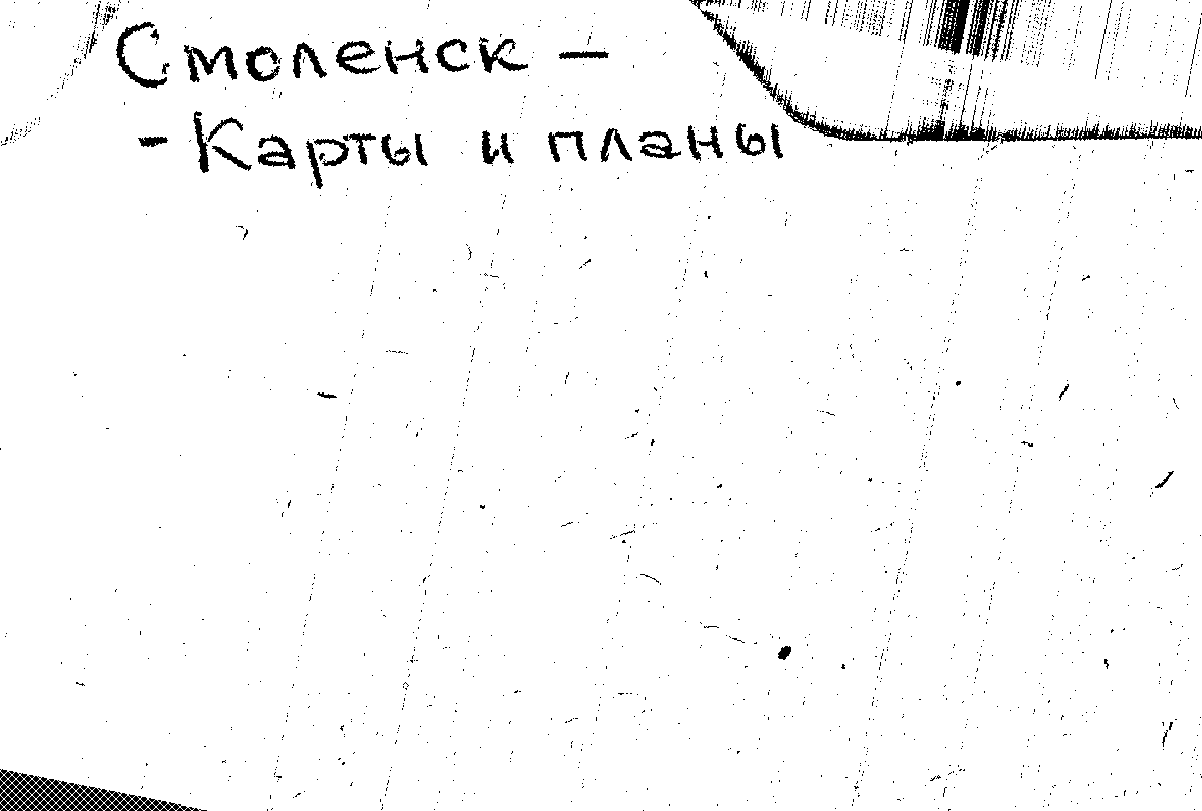 Смоленск —
- Карты и планы